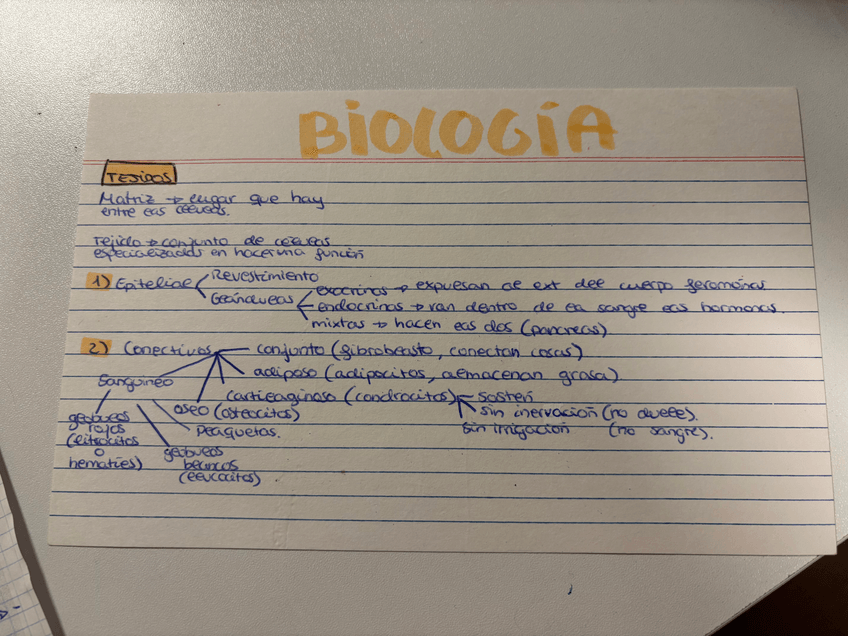 BIOLOGÍA
TEJIDOS
Matriz → lugar que hay
entre las células.
Tejido → conjunto de células
especializadas en hacer una función
1) Epitelial
Revestimiento
Glándulas
exocrinas → expulsan al ext del cuerpo feromonas
endocrinas → van dentro de la sangre las hormonas.
mixtas → hacen las dos (pancreas)
2) Conectivos
conjunto (fibroblasto, conectan cosas)
adiposo (adipocitos, almacenan grasa)
cartilaginoso (condrocitos)
sostén
sin inervación (no duele).
sin irrigación (no sangre).
oseo (osteocitos)
Sanguíneo
globulos
rojos
(eritrocitos
o
hematíes)
Plaquetas.
globulos
blancos
(leucocitos)